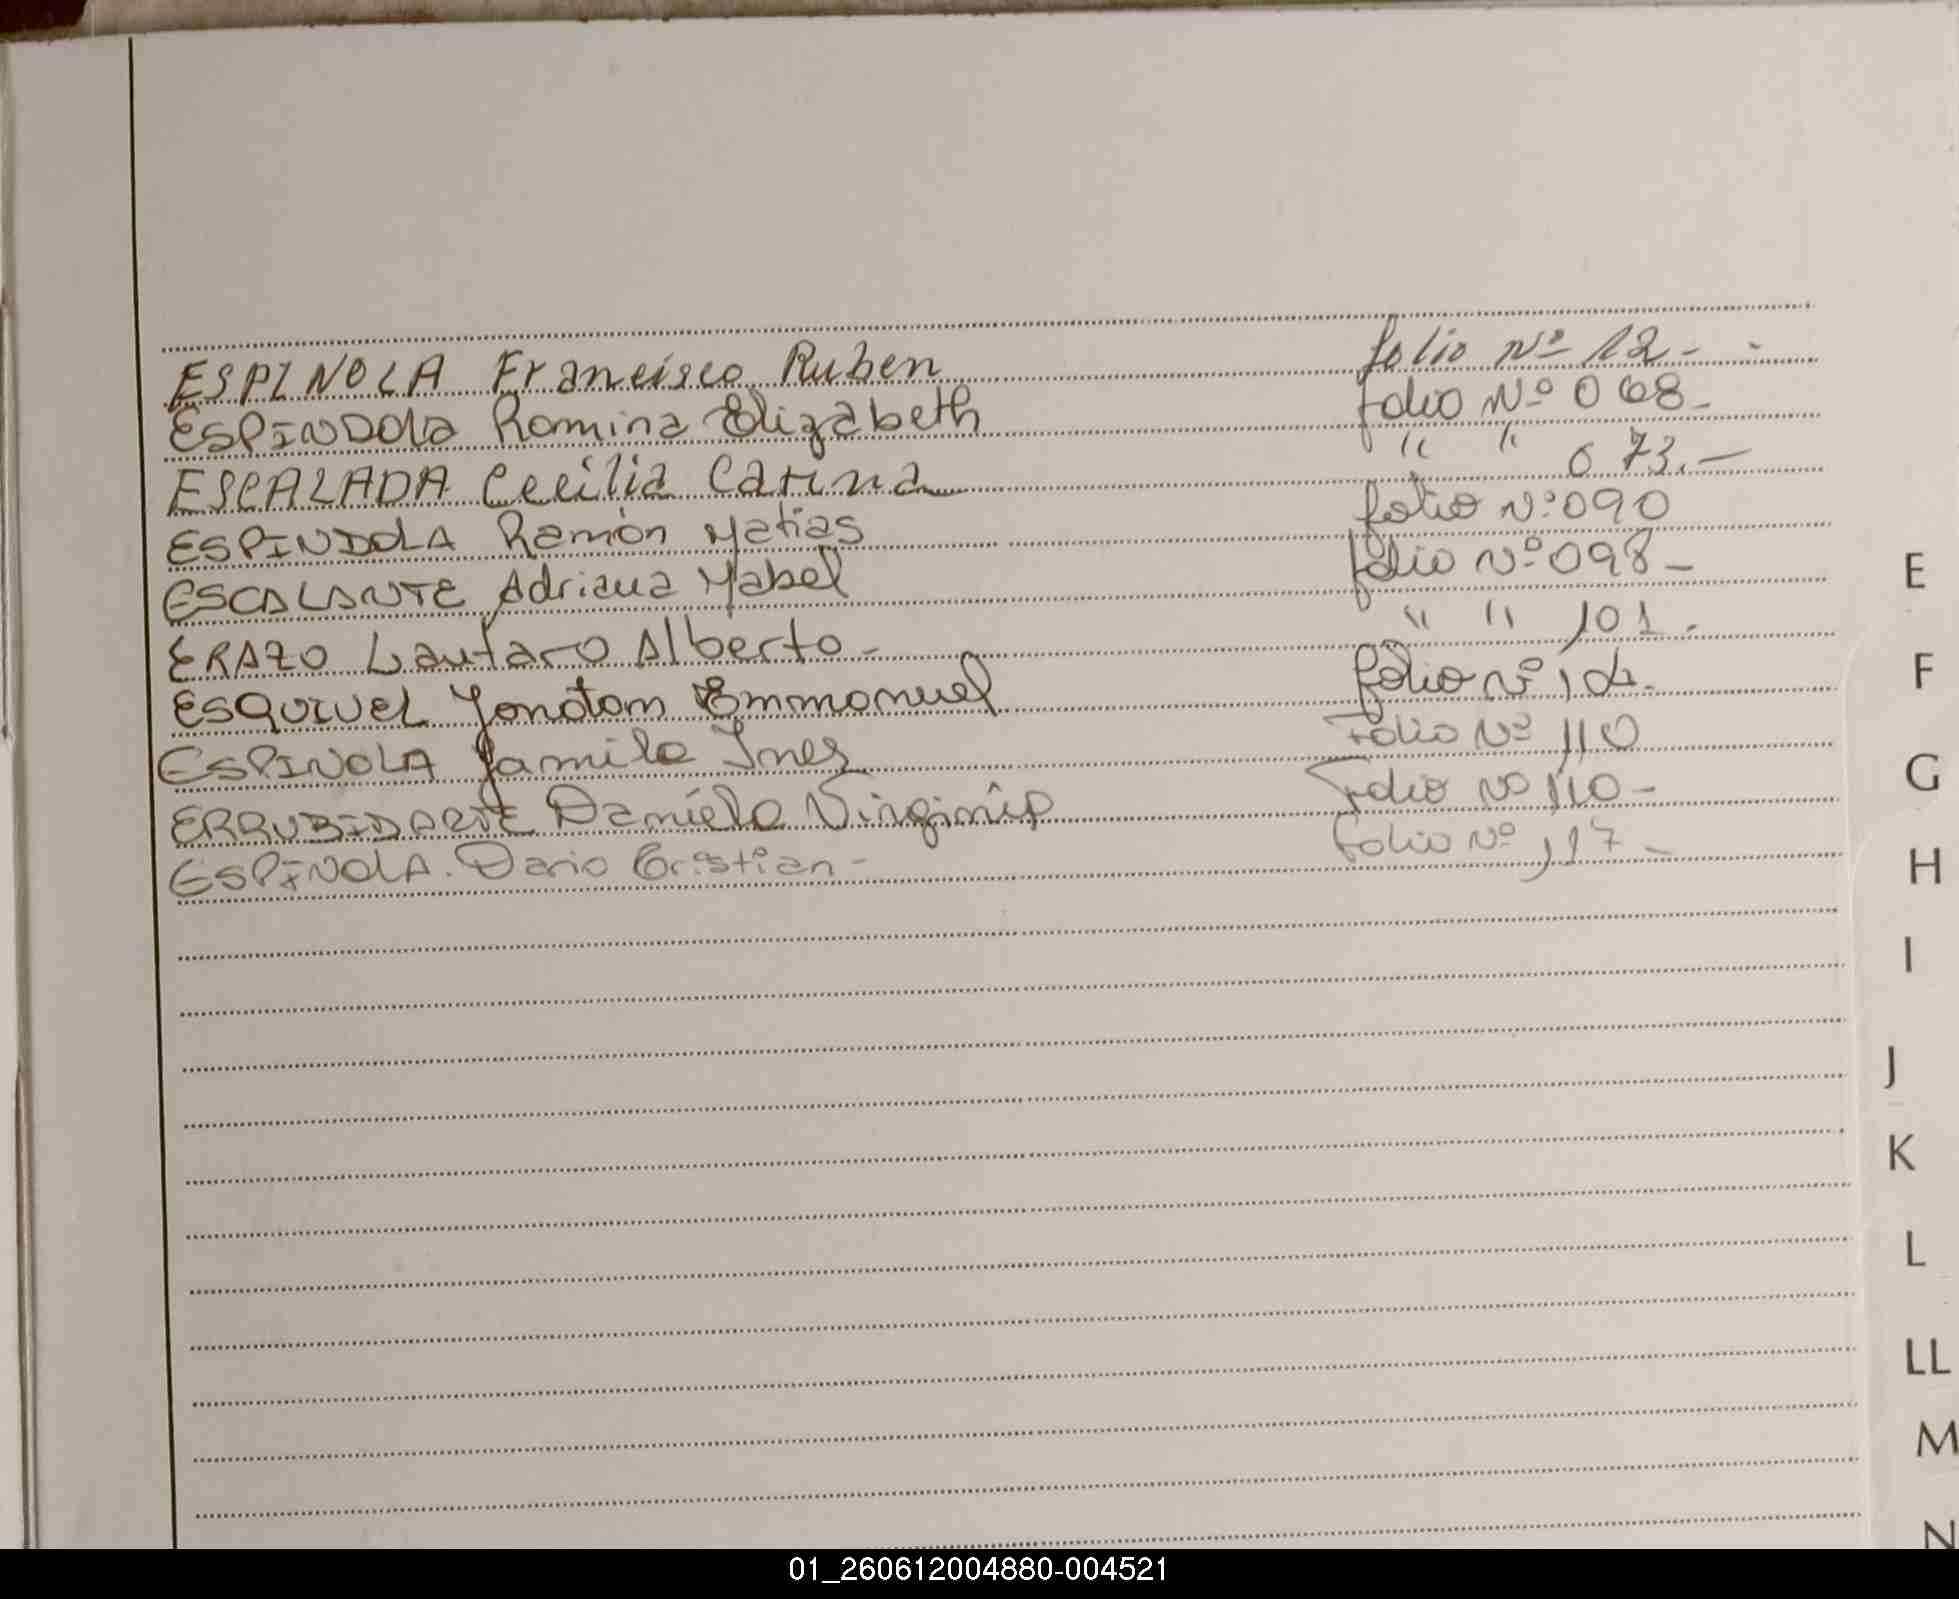 ESPINOLA Francisco Ruben folio Nº 12 - -
ESPINDOLA Romina Elizabeth folio Nº 068 -
ESCALADA Cecilia Carina " " 073. -
ESPINDOLA Ramón Matias folio Nº 090
ESCALANTE Adriana Mabel folio Nº 098 -
ERAZO Lautaro Alberto - " " 101. -
ESQUIVEL Jonatam Emmanuel folio Nº
ESPINOLA Yamila Ines Folio Nº 110
E
ERRUBIDARTE Daniela Virginia Folio Nº 110 -
ESPINOLA. Dario Cristian - Folio Nº 117 -
F
G
H
I
J
K
L
LL
M
N
01_260612004880-004521